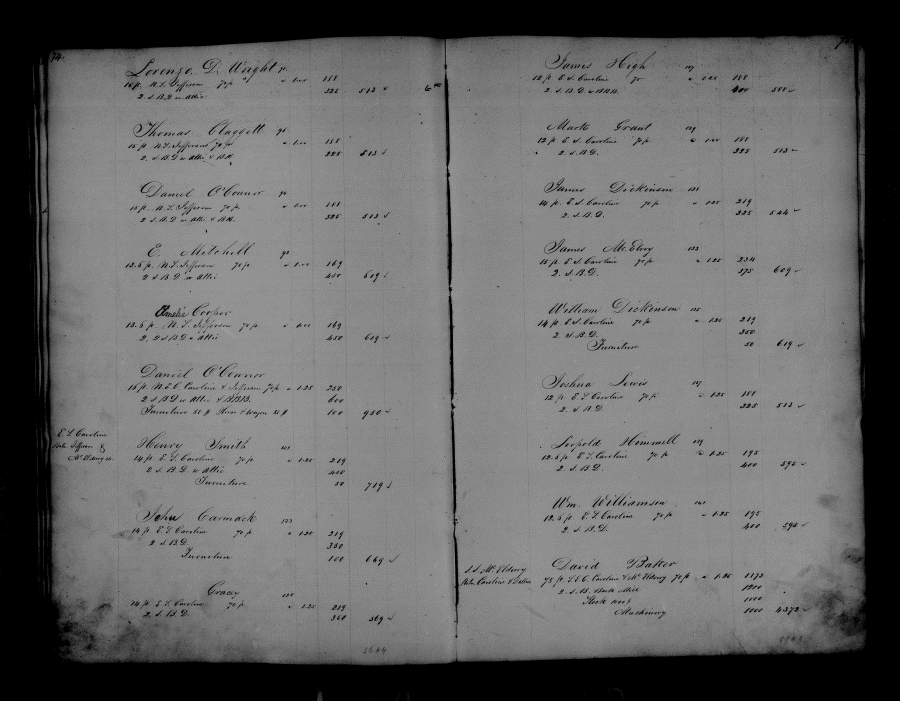 74.
Lorenzo D. Wright
15 p. N. S. Jefferson 70 p " 1.00 188
2. S. B. D w Attic 325 513
Thomas Claggett
15 p. N. S. Jefferson 70 p " 1.00 188
2. S. B. D w Attic & B.B. 325 513
Daniel O'Connor
15 p. N. S. Jefferson 70 p " 1.00 188
2. S. B. D w Attic & B.B. 325 513
E. Mitchell
13.6 p. N. S. Jefferson 70 p " 1.00 169
2 S. B. D w Attic 450 619
Cooper
13.6 p. N. S. Jefferson 70 p " 1.00 169
2. S. B. D w Attic 450 619
Daniel O'Connor
16 p. N. E. C. Caroline & Jefferson 70 p " 1.25 250
2. S. B. D w Attic & B.B.B. 600
Furniture 50 p Horse & Wagon 50 p 100 950
E S Caroline
Betw Jefferson &
McElderry st.
Henry Smith 121
14 p. E. S. Caroline 70 p " 1.25 219
2 S. B. D. w Attic 400
Furniture 50 719
John Carmack 123
14 p. E. S. Caroline 70 p " 1.25 219
2 S. B D. 350
Furniture 100 669
Gracey 125
14 p. E. S. Caroline 70 p " 1.25 219
2. S. B. D. 350 569
5644
James High 127
12 p. E. S. Caroline 70 " 1.25 188
2. S. B. D. w B.B. 400 588
Mark Grant 129
12 p. E. S. Caroline 70 p " 1.25 188
2. S. B. D. 325 513
James Dickinson 131
14 p. E. S. Caroline 70 p " 1.25 219
2. S. B. D. 325 544
James McElroy 133
15 p. E. S. Caroline 70 p " 1.25 234
2. S. B. D. 375 609
William Dickinson 135
14 p. E. S. Caroline 70 p " 1.25 219
2 S. B. D. 350
Furniture 50 619
Joshua Lewis 137
12 p. E. S. Caroline 70 p " 1.25 188
2. S. B. D 325 513
Leopold Himmell 139
12.6 p. E. S. Caroline 70 p " 1.25 195
2. S. B. D. 400 595
Wm. Williamson 141
12.6 p. E. S. Caroline 70 p " 1.25 195
2. S. B. D. 400 595
S. S. McElderry
Betw Caroline & Dallas
David Baker
75 p. S. E. C. Caroline & McElderry 70 p " 1.25 1172
2. S. B. Bark Mill 1200
Stock 1000
Machinery 1000 4372